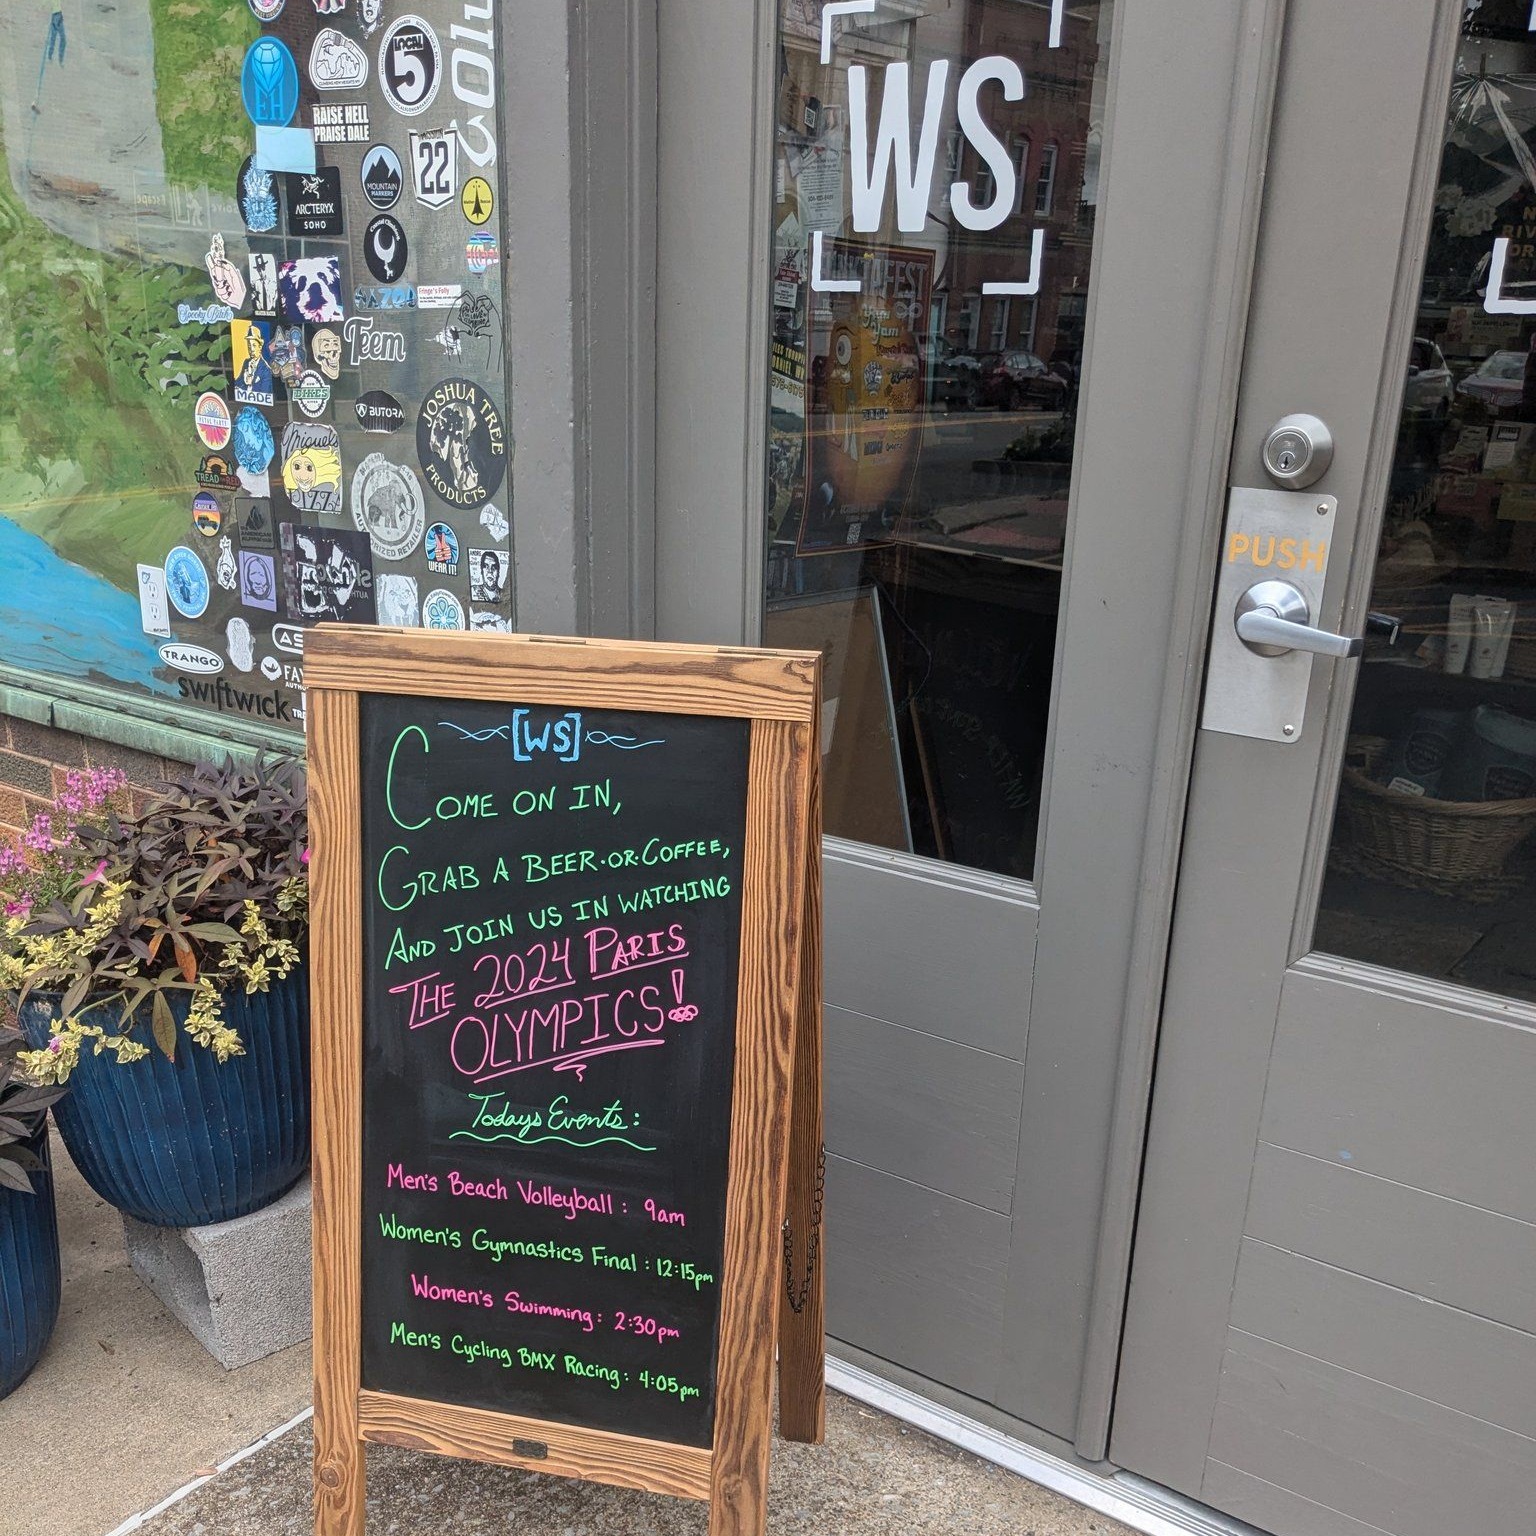 LOCAL
5
EH
RAISE HELL
PRAISE DALE
MISSION
22
MOUNTAIN
MARKERS
ARC'TERYX
SOHO
Coastal Climbers
Fringe's Folly
Spooky Bitch
Teem
MADE
BIKES
BUTORA
JOSHUA TREE
PRODUCTS
Miguel's
PIZZA
TREAD THE RED
AUTHORIZED RETAILER
WEAR IT!
TRANGO
swiftwick
WS
PUSH
[WS]
COME ON IN,
GRAB A BEER·OR·COFFEE,
AND JOIN US IN WATCHING
THE 2024 PARIS
OLYMPICS!
Todays Events:
Men's Beach Volleyball: 9am
Women's Gymnastics Final: 12:15pm
Women's Swimming: 2:30pm
Men's Cycling BMX Racing: 4:05pm